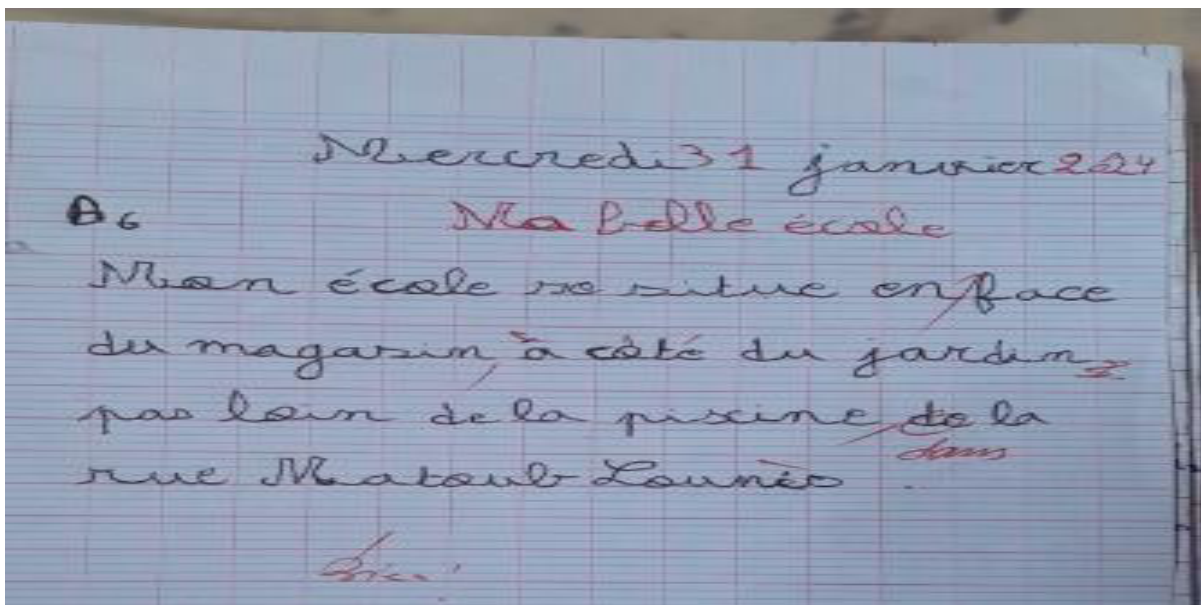 Mercredi 31 janvier 2024
A6 Ma belle école
Mon école se situe en face
du magasin, à côté du jardin,
pas loin de la piscine, de la
dans
rue Matoub Lounès.
Bien!